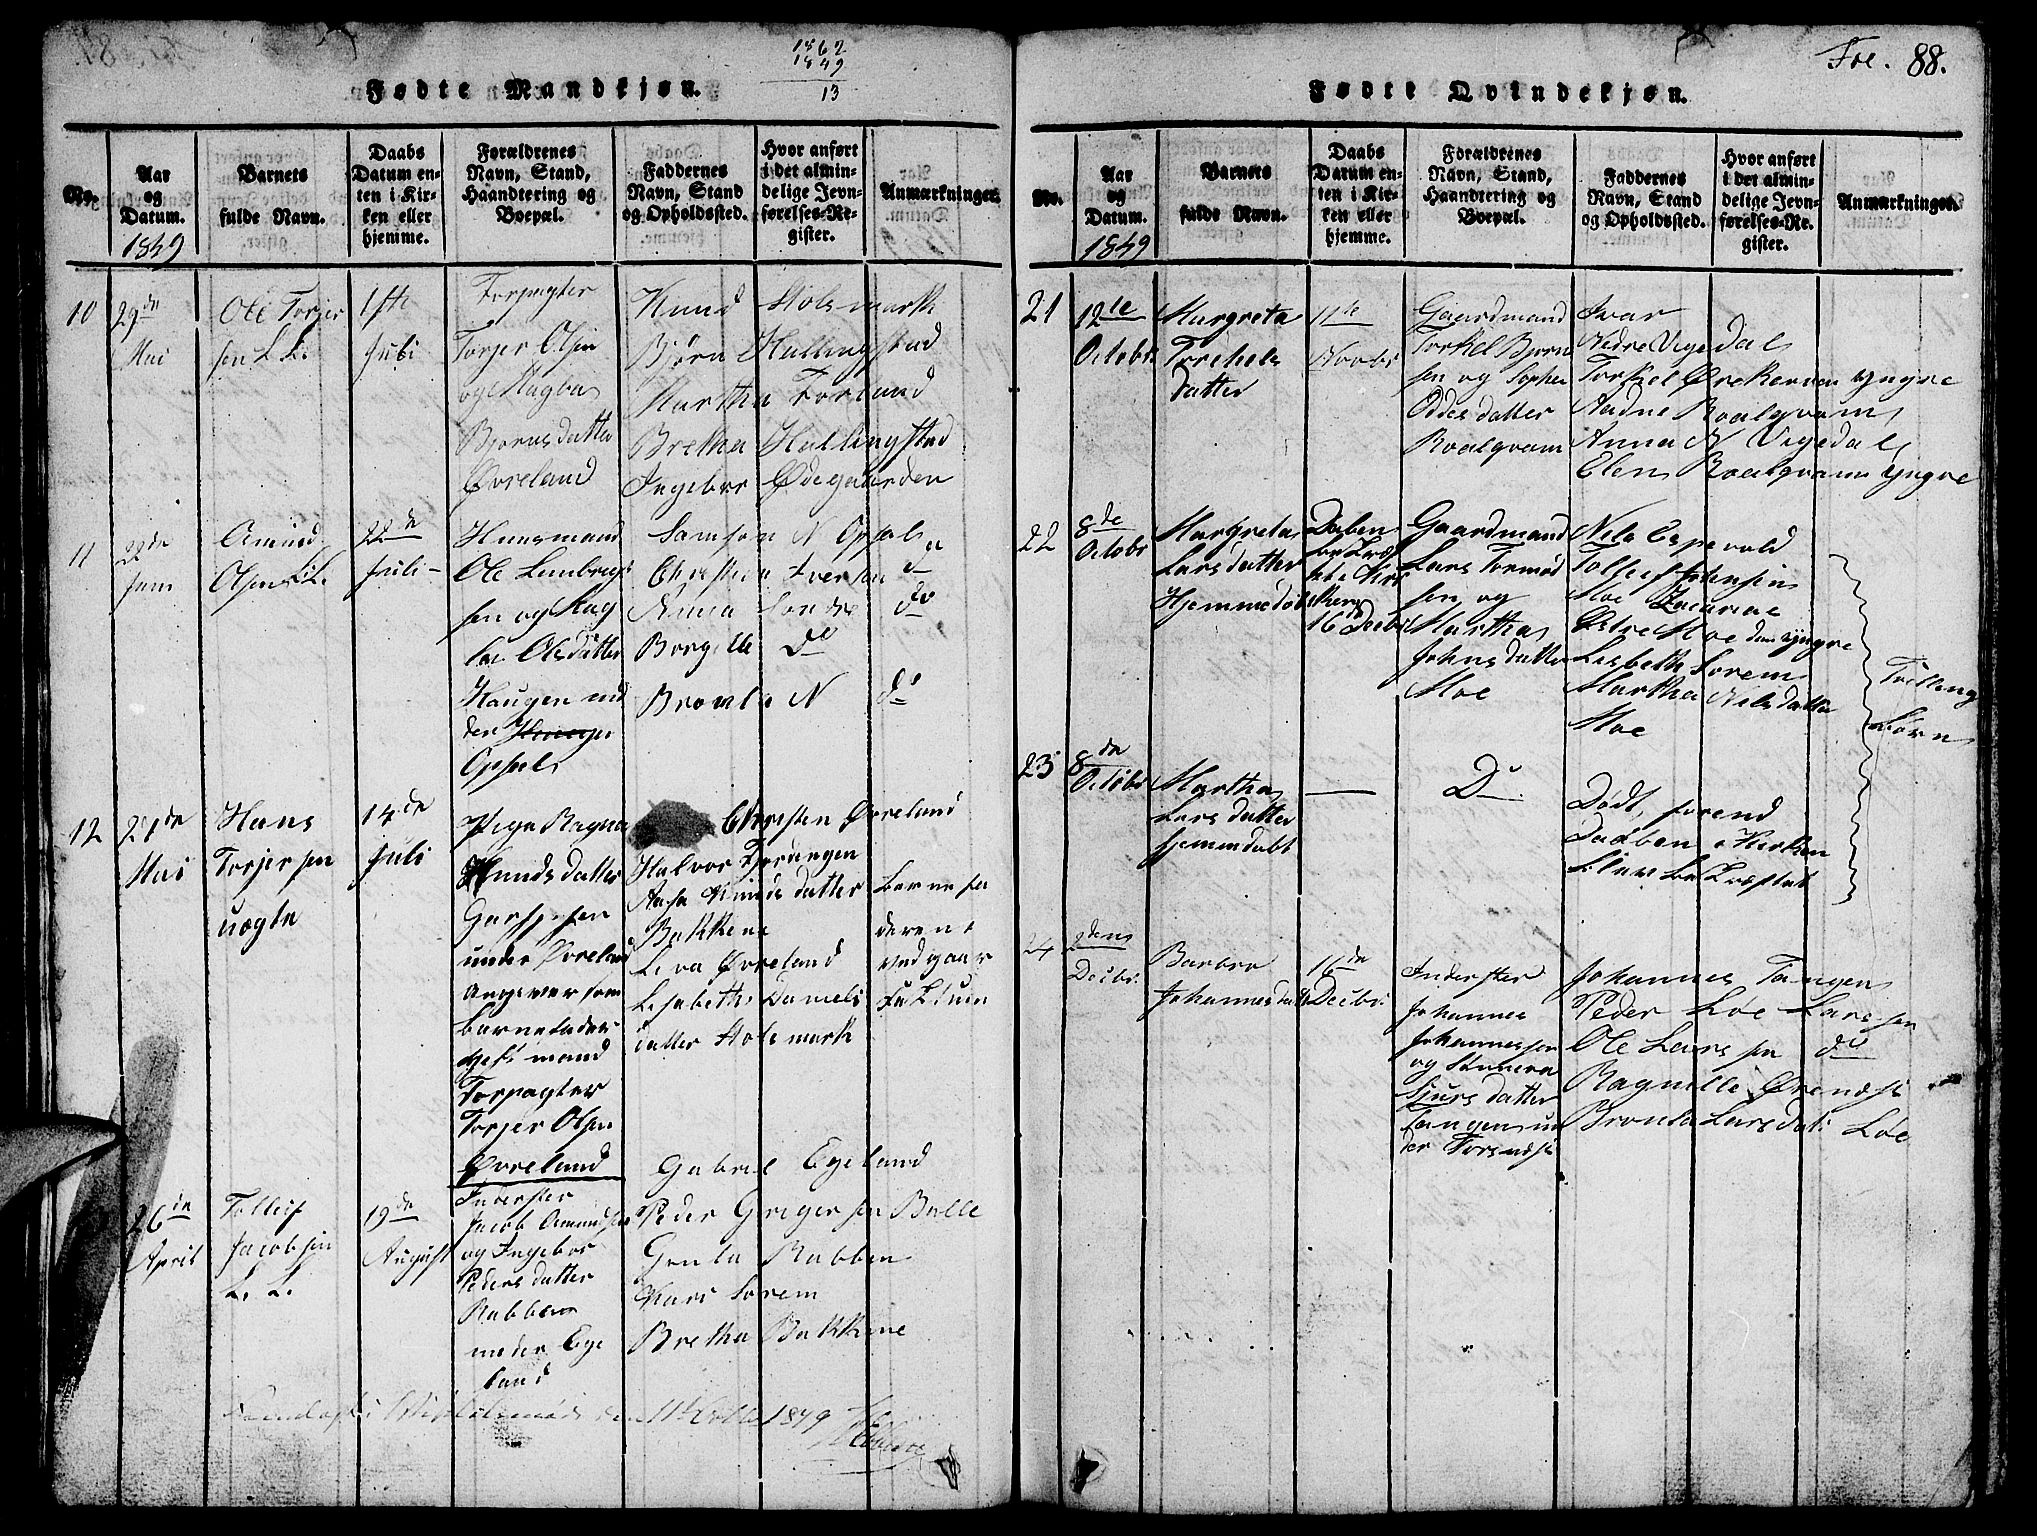 1862
1849
13
Fødte Mandkjøn.
No.
Aar og Datum.
1849
Barnets fulde Navn.
Daabs Datum enten i Kirken eller hjemme.
Forældrenes Navn, Stand, Haandtering og Boepæl.
Faddernes Navn, Stand og Opholdssted.
Hvor anført i det almindelige Jevnførelses-Register.
Anmærkninger.
10
29de
Mai
Ole Torjer
sen L. L.
1ste
Juli
Forpagter
Torjer Olsen
og Magva
Bjørnsdatter
Øvreland
Knud Holsmark
Bjørn Hallingstad
Martha Forland
Bretha Hallingstad
Ingebor Ødegaarden
11
22de
Juni
Amund
Olsen L. L.
22de
Juli
Huusmand
Ole
sen og
Olsdatter
Haugen un
der
Opsal
Samson N Opsal
Christen Iversen do
Anna Søndre do
Borgille Do
N do
12
27de
Mai
Hans
Torjersen
uægte
14de
Juli
Pige Ragna
Knudsdatter
under Øvreland
Angiver som
barnefader
gift mand
Forpagter
Torjer Olsen
Øvreland
Christen Øvreland
Halvor
Aasa Knudsdatter
Bakkene
Øvreland
Lisabeth Daniels
datter Holsmark
26de
April
Tollef
Jacobsen
L. L.
19de
August
Inderster
Jacob Amundsen
og Ingebor
Pedersdatter
Rabben
under Ege
land
Gabriel Egeland
Peder Gregersen Balle
Rabben
Sørem
Bretha Bakkene
1849
Foe. 88.
Fødte Qvindekjøn.
No.
Aar og Datum.
1849
Barnets fulde Navn.
Daabs Datum enten i Kirken eller hjemme.
Forældrenes Navn, Stand, Haandtering og Boepæl.
Faddernes Navn, Stand og Opholdssted.
Hvor anført i det almindelige Jevnførelses-Register.
Anmærkninger.
21
12te
Octobr.
Margreta
datter
11te
Novbr
Gaardmand
Torkel Bjørn
sen og Sophia
Oddesdatter
Roalqvam
Ivar
Nedre Vigedal
Torkel yngre
Aadne Roalqvam
Anna N Vigedal
Elen Roalqvam yngre
22
8de
Octobr
Margreta
Larsdatter
Hjemmedøbt
Daaben
16 Decbr
Gaardmand
Lars Tormod
sen og
Martha
Johnsdatter
Moe
Nils Espevold
Tollef Johnsen
Moe
Østre Moe den yngre
Lisbeth Sørem
Martha Nilsdatter
Moe
Trilling
Børn
23
8de
Octobr
Martha
Larsdatter
hjemmedøbt
Do
Død, forend
Daaben i Kirken
blev bekræftet
24
2den
Decbr.
Barbro
Johannesdatter
16de
Decbr.
Inderster
Johannes
Johannessen
og
Sjursdatter
Tangen un
der
Johannes Tangen
Peder Løe Larssen
Ole Larssen do
Ragnille
Larsdatr Løe